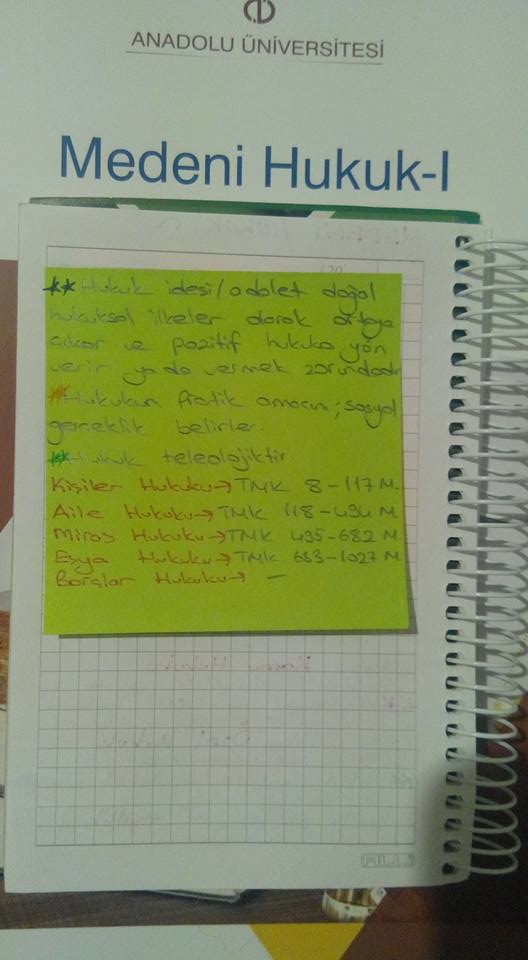 ANADOLU ÜNİVERSİTESİ
Medeni Hukuk-I
** Hukuk idesi/adalet doğal
hukuksal ilkeler olarak ortaya
çıkar ve pozitif hukuka yön
verir ya da vermek zorundadır
* Hukukun Pratik amacını; sosyal
gerçeklik belirler.
** Hukuk teleolojiktir
Kişiler Hukuku → TMK 8-117 M.
Aile Hukuku → TMK 118-494 M.
Miras Hukuku → TMK 495-682 M.
Eşya Hukuku → TMK 683-1027 M
Borçlar Hukuku → —